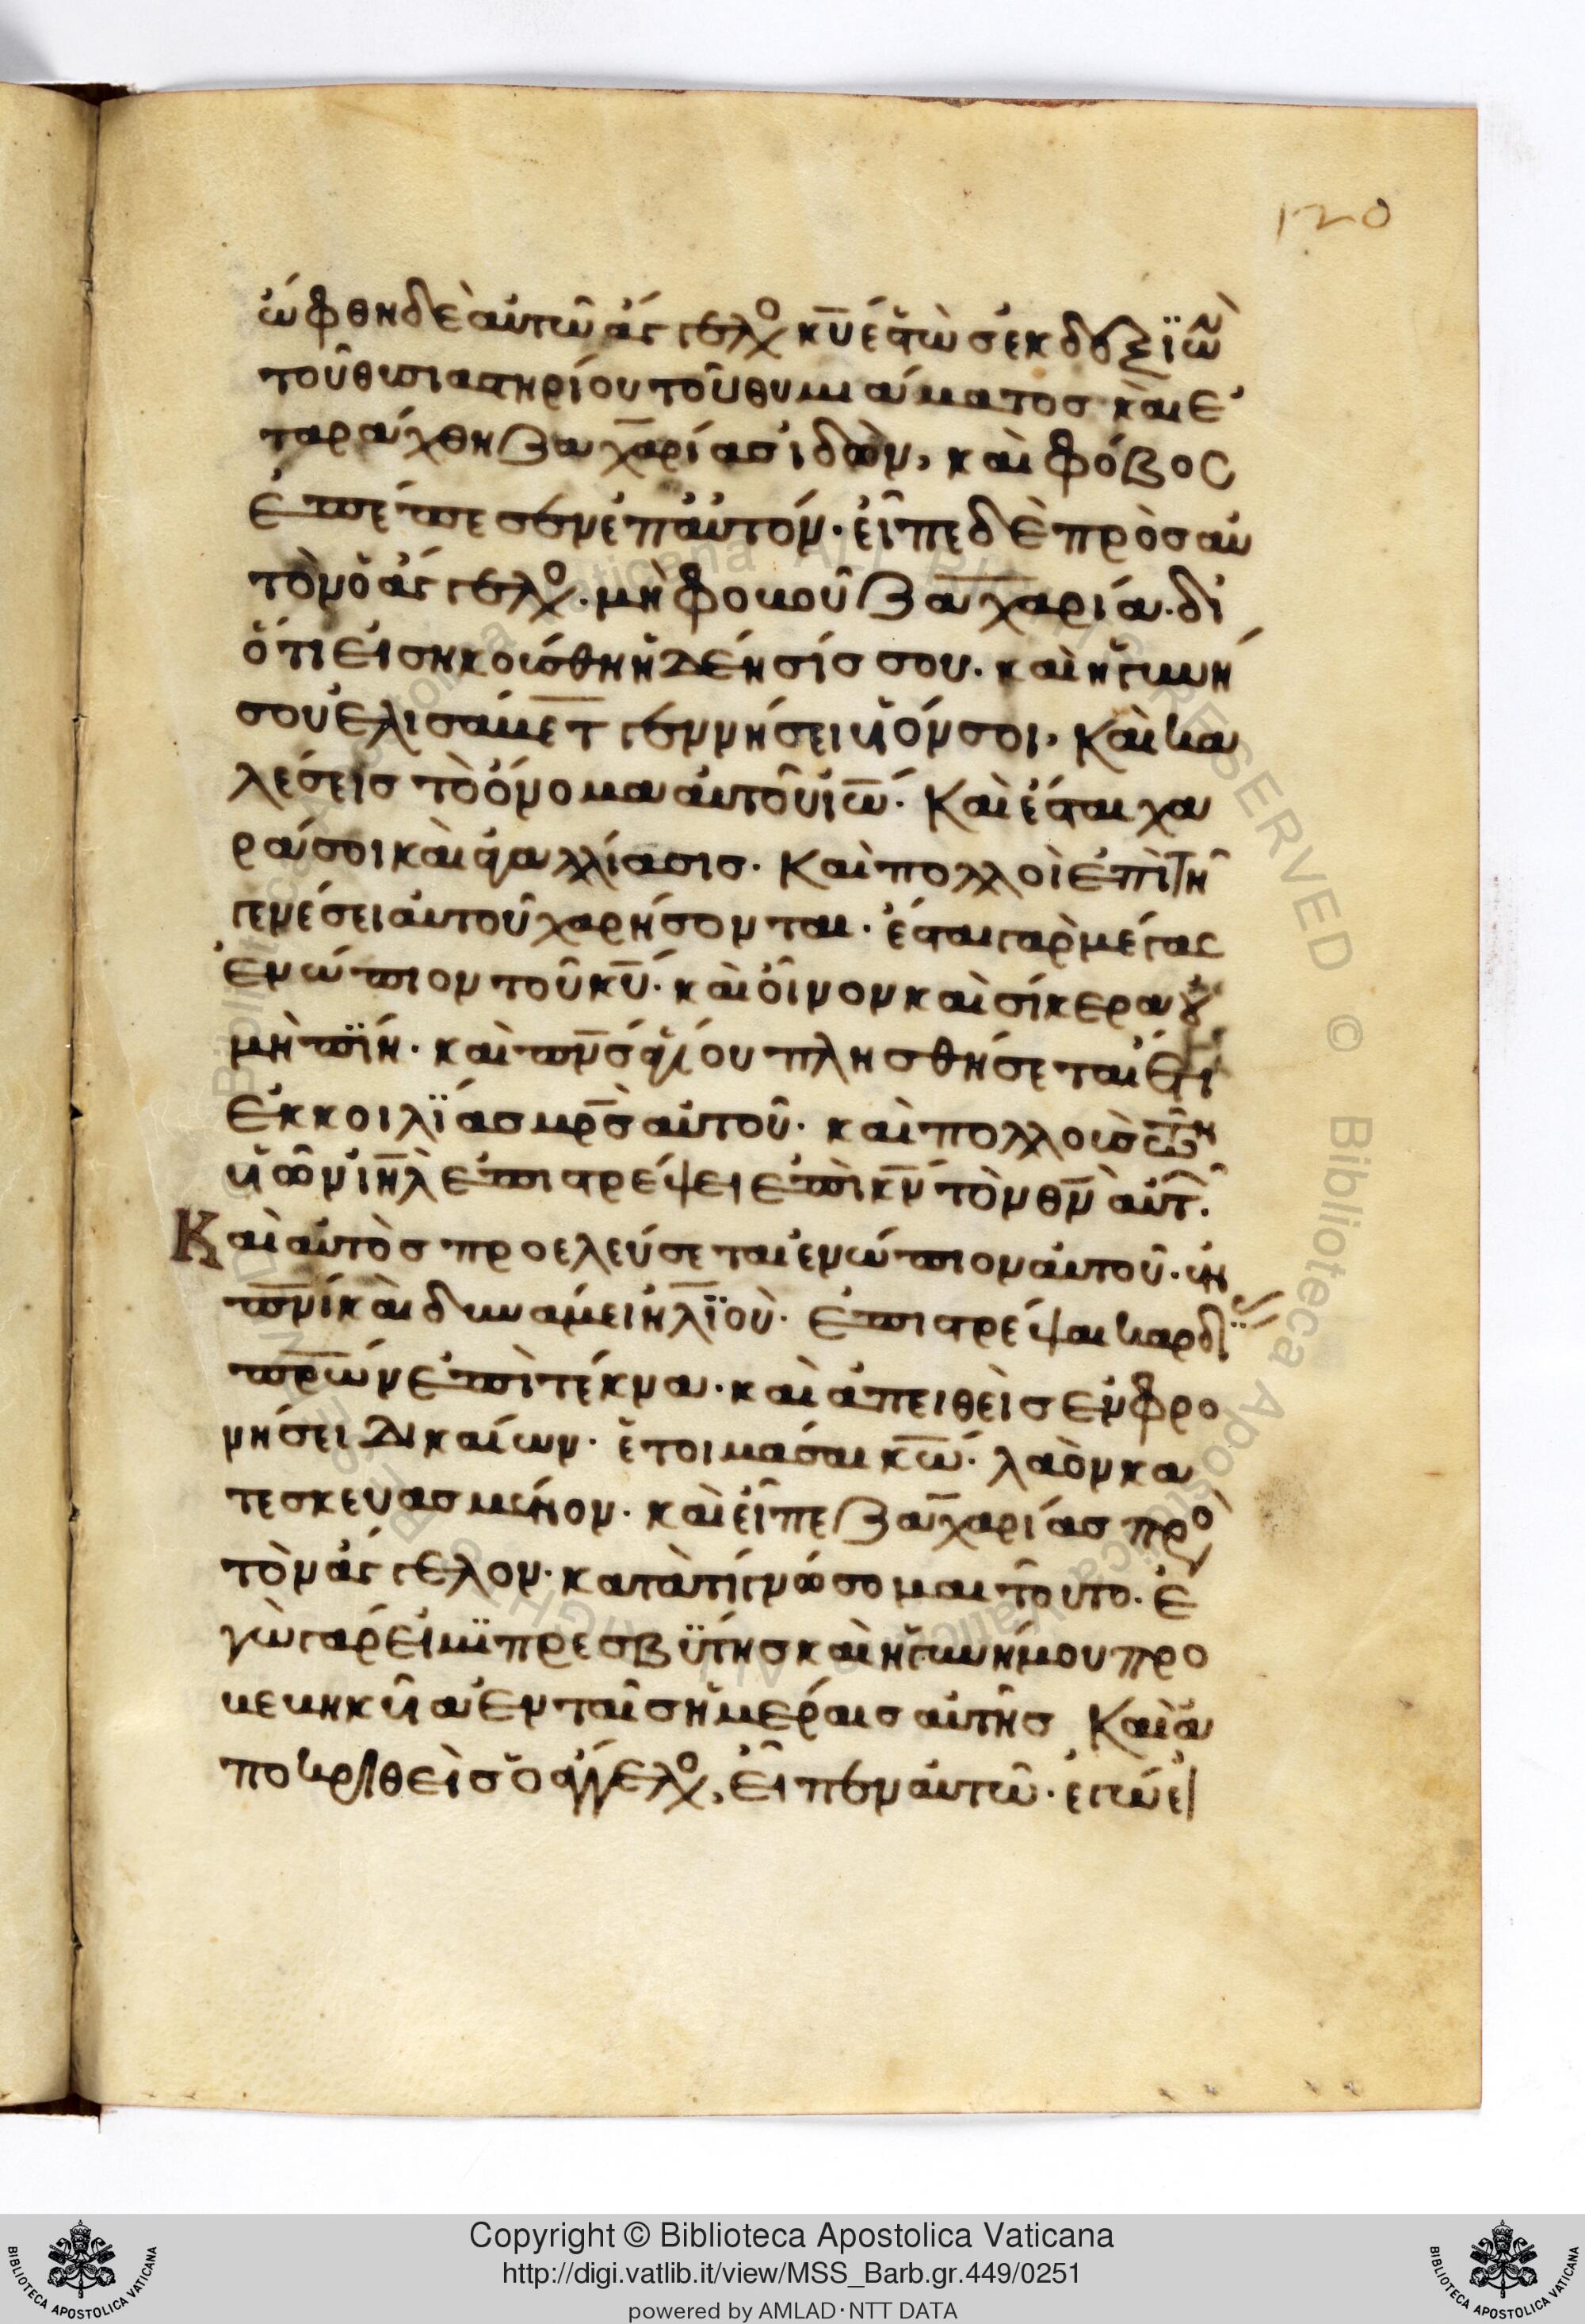 120
ὤφθη δὲ αὐτῶ ἄγγελος κ̅υ ἑστὼς ἐκ δεξϊῶν
τοῦ θυσιαστηρίου τοῦ θυμιάματος καὶ ἐ
ταράχθη ζαχαρίας ἰδὼν, καὶ φόβος
ἐπέπεσεν ἐπ αὐτόν· εἶπε δὲ πρὸς αὐ
τὸν ὁ ἄγγελος· μὴ φοβοῦ ζαχαρία· δι
ότι εἰσηκούσθη ἡ δέησίς σου· καὶ ἡ γυνή
σου ἐλισάβετ γεννήσει υἱόν σοι, καὶ κα
λέσεις τὸ ὄνομα αὐτοῦ ἰω̅· Καὶ ἔσται χα
ρά σοι καὶ ἀγαλλίασις· Καὶ πολλοὶ ἐπὶ τῆ
γενέσει αὐτοῦ χαρήσονται· ἔσται γὰρ μέγας
ἐνώπιον τοῦ κ̅υ· καὶ οἶνον καὶ σίκερα οὐ
μὴ πΐη· καὶ π̅ν̅ς ἁγίου πλησθήσεται ἔτι
ἐκ κοιλΐας μ̅ρ̅ς αὐτοῦ· καὶ πολλοὺς τῶν
υἱῶν ι̅η̅λ ἐπιστρέψει ἐπὶ κ̅ν τὸν θ̅ν αὐτῶν·
Καὶ αὐτὸς προελεύσεται ἐνώπιον αὐτοῦ· ἐν
π̅ν̅ι καὶ δυνάμει ἠλϊοὺ· ἐπιστρέψαι καρδίας
π̅ρ̅ων ἐπὶ τέκνα· καὶ ἀπειθεῖς ἐν φρο
νήσει δικαίων· ἑτοιμάσαι κ̅ω· λαὸν κα
τεσκευασμένον· καὶ εἶπε ζαχαρίας πρὸς
τὸν ἄγγελον· κατὰ τί γνώσομαι τοῦτο· ἐ
γὼ γάρ εἰμϊ πρεσβϋτης καὶ ἡ γυνή μου προ
βεβηκυῖα ἐν ταῖς ἡμέραις αὐτῆς Καὶ ἀ
ποκριθεὶς ὁ ἄγγελος, εἶπεν αὐτῶ· ἐγώ εἰ
Copyright © Biblioteca Apostolica Vaticana
http://digi.vatlib.it/view/MSS_Barb.gr.449/0251
powered by AMLAD·NTT DATA
BIBLIOTECA APOSTOLICA VATICANA
BIBLIOTECA APOSTOLICA VATICANA